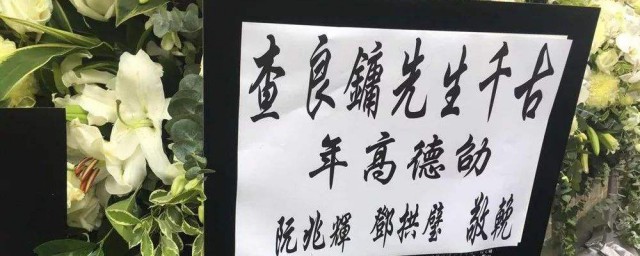 查良鏞先生千古
年高德劭
阮兆輝 鄧拱璧 敬輓